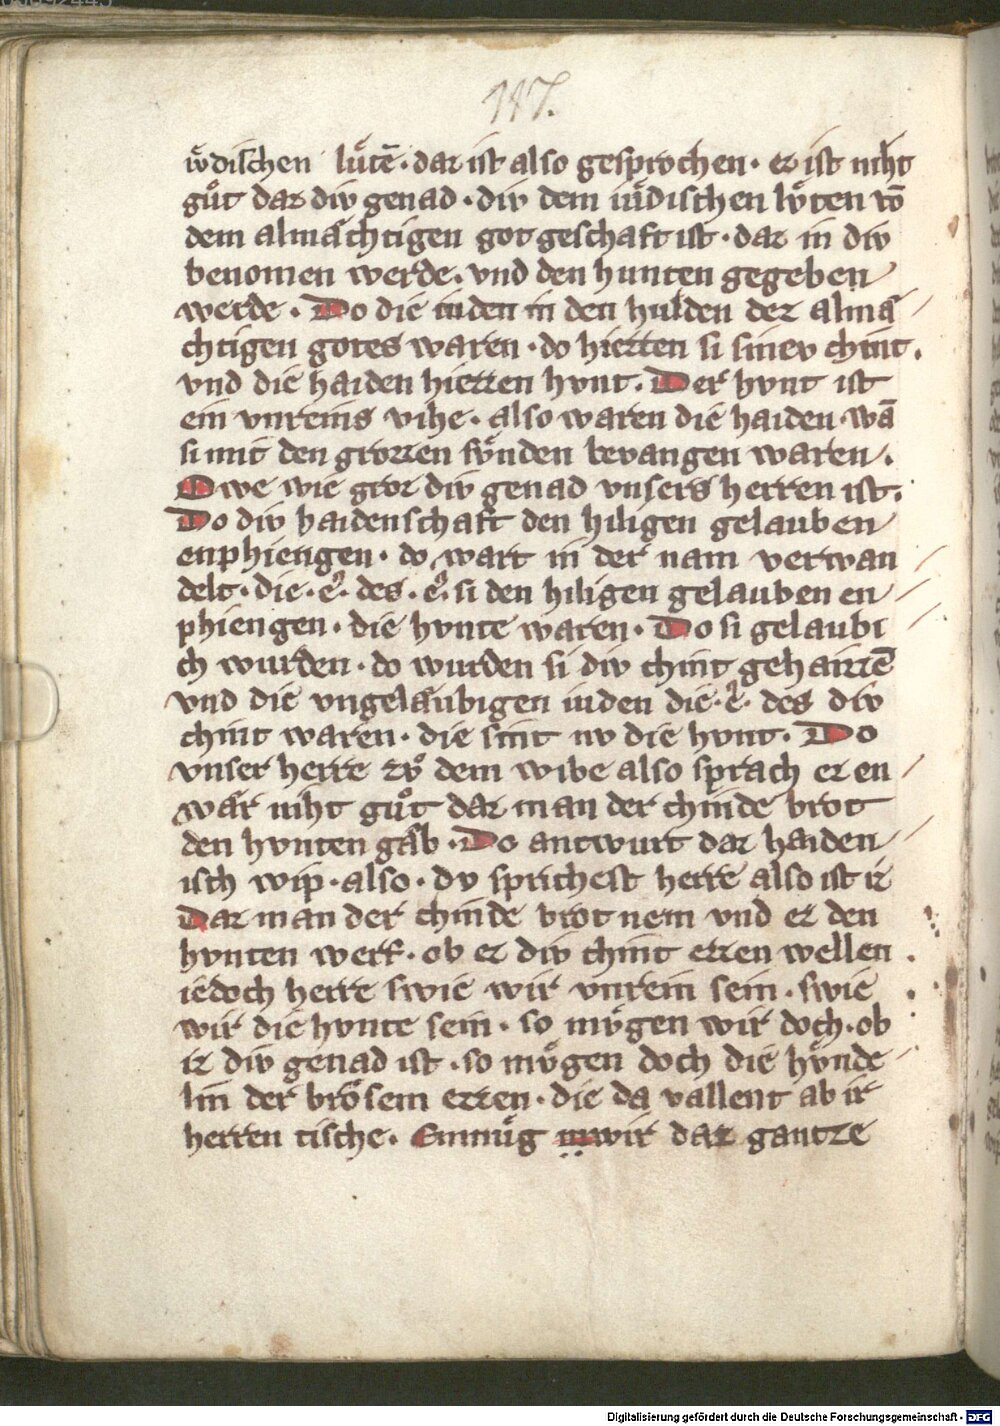 147.
iv̊dischen lv̊tē · daz ist also gesprochen · ez ist niht
gůt daz div genad · div dem iůdischen lv̊ten vō
dem almæchtigen got geschaft ist · daz in div
benomen werde · vnd den hunten gegeben
werde · Do die iuden in den hulden dez almæ
chtigen gotes waren · do hiezzen si sinev chint ·
vnd die haiden hiezzen hvnt · Der hvnt ist
ein vnreins vihe · also waren die haiden · wā
si mit den grozzen sv̊nden bevangen waren ·
Owe wie groz div genad vnsers herren ist ·
Do div haidenschaft den hiligen gelauben
enphiengen · do wart in der nam verwan
delt · die · e · des · e · si den hiligen gelauben en
phiengen · die hvnte waren · Do si gelaubi
ch wurden · do wurden si div chint gehaizzē
vnd die vngelaubigen iuden die · e · des div
chint waren · die sint nv die hvnt · Do
vnser herre zv̊ dem wibe also sprach ez en
wær niht gůt daz man der chinde brot
den hvnten gæb · Do antwurt daz haiden
isch wip · also · dv sprichest herre also ist iz
Daz man der chinde brot nem vnd ez den
hvnten werf · ob ez div chint ezzen wellen ·
iedoch herre swie wir vnrein sein · swie
wir die hvnte sein · so mv̊gen wir doch · ob
iz div genad ist · so mv̊gen doch die hv̊nde
lin der brosem ezzen · die da vallent ab ir
herren tische · Enmůg wir daz gantze
Digitalisierung gefördert durch die Deutsche Forschungsgemeinschaft - DFG